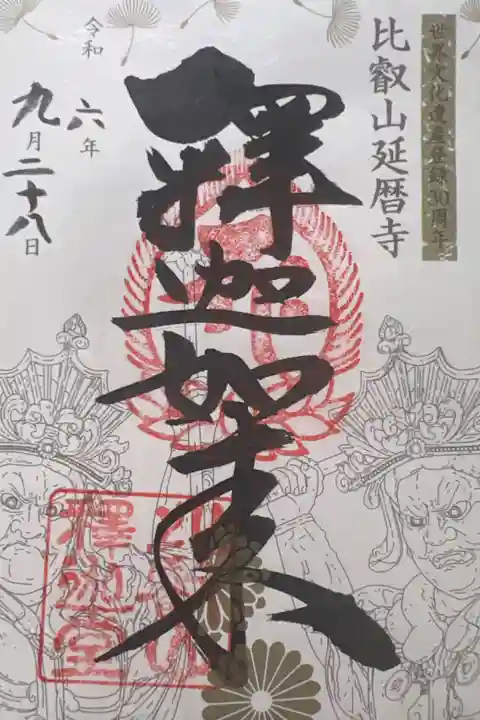 世界文化遺産登録30周年
比叡山延暦寺
釋迦如来
令和六年
九月二十八日
釋迦堂